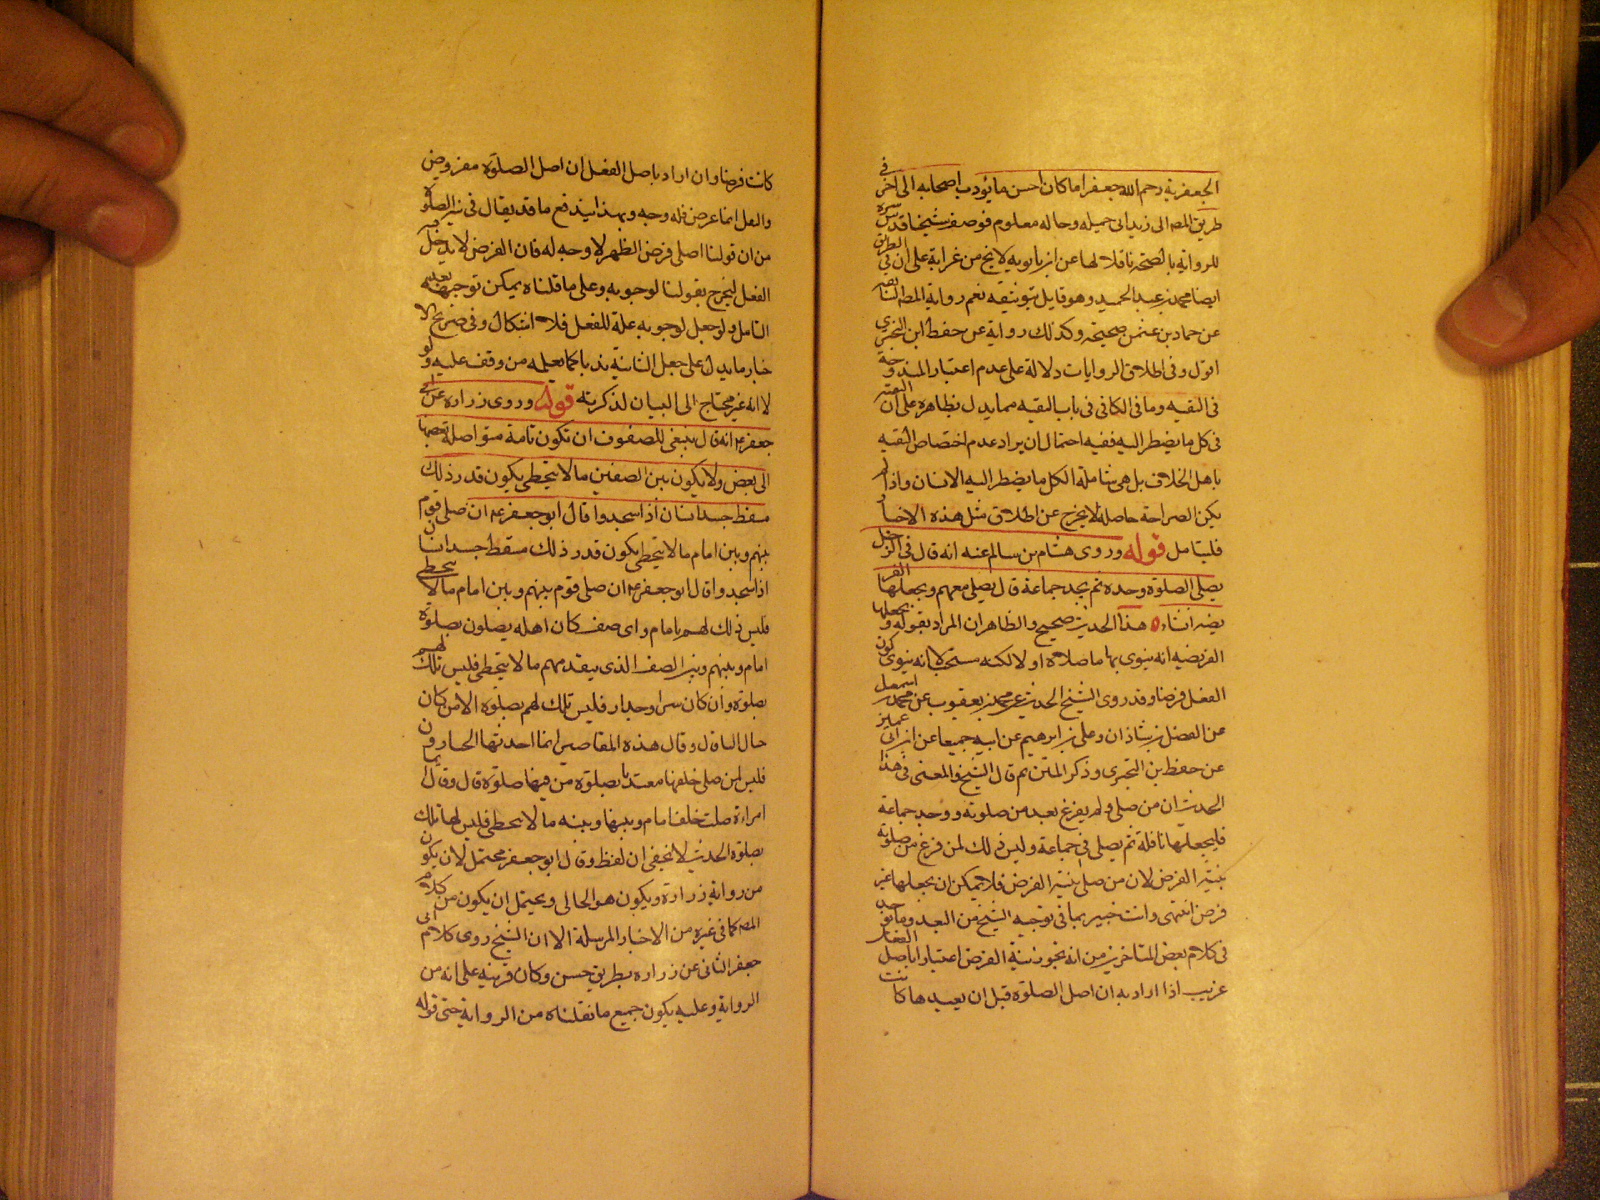 الجعفرية رحم الله جعفرا ما كان احسن ما يؤدب اصحابه الى اخر في
طريق المص الى زيد ابى جميله وحاله معلوم فوصف شيخنا قدس سره
للرواية بالصحة ناقلا لها عن ابن بابويه لا يخ من غرابة على ان في الطريق
ايضا محمد بن عبد الحميد وهو قايل بتوثيقه نعم رواية المص
عن حماد بن عثمن صحيحة وكذلك رواية عن حفص ابن البختري
اقول وفي اطلاق الروايات دلالة على عدم اعتبار المندوحة
في التقيه وما في الكافي في باب التقيه مما يدل بظاهره على ان التقيه
في كل ما يضطر اليه ففيه احتمال ان يراد عدم اختصاص التقيه
باهل الخلاف بل هي شاملة لكل ما يضطر اليه الانسان واذا لم
يكن الصراحة حاصلة لا يخرج عن اطلاق مثل هذه الاخبار
فليتامل قوله وروى هشام بن سالم عنه انه قال في الرجل
يصلى الصلوة وحده ثم يجد جماعة قال يصلى معهم ويجعلها الفر
يضه ان شاء ه هذا الحديث صحيح والظاهر ان المراد بقوله ويجعلها
الفريضه انه ينوى بها ما صلاه اولا لكنه مستحب لا انه ينوى كون
الفعل فرضا وقد روى الشيخ الحديث عن محمد بن يعقوب عن محمد بن اسمعيل
عن الفضل بن شاذان وعلى بن ابرهيم عن ابيه جميعا عن ابن ابى عمير
عن حفص بن البختري وذكر المتن ثم قال الشيخ والمعنى في هذا
الحديث ان من صلى ولم يفرغ بعد من صلوته ووجد جماعة
فليجعلها نافلة ثم يصلى في جماعة وليس ذلك لمن فرغ من صلوته
بنية الفرض لان من صلى بنية الفرض فلا يمكن ان يجعلها غير
فرض انتهى وانت خبير بما في توجيه الشيخ من البعد وما يوجد
في كلام بعض المتاخرين من انه يجوز نية الفرض اعتبارا باصل الفعل
غريب اذا اراد به ان اصل الصلوة قبل ان يعيدها كانت
كانت فرضا وان اراد باصل الفعل ان اصل الصلوة مفروض
والفعل انما عرض فله وجه وبهذا يندفع ما قد يقال في نية الصلوة
من ان قولنا اصلى فرض الظهر لا وجه له فان الفرض لا يدخل فيه
الفعل ليخرج بقولنا لوجوبه وعلى ما قلناه يمكن توجيهه بعد
التامل ولو جعل لوجوبه علة للفعل فلا اشكال وفي صريح الا
خبار ما يدل على جعل الثانية ندبا كما يعلمه من وقف عليه ولو
لا انه غير محتاج الى البيان لذكرته قوله وروى زراره عن ابى
جعفر ع انه قال ينبغى للصفوف ان تكون تامة متواصلة بعضها
الى بعض ولا يكون بين الصفين ما لا يتخطى يكون قدر ذلك
مسقط جسد انسان اذا سجد وقال ابو جعفر ع ان صلى قوم
بينهم وبين امام ما لا يتخطى يكون قدر ذلك مسقط جسد انسان
اذا سجد وقال ابو جعفر ع ان صلى قوم بينهم وبين امام ما لا يتخطى
فليس ذلك لهم بامام واى صف كان اهله يصلون بصلوة
امام وبينهم وبين الصف الذى يتقدمهم ما لا يتخطى فليس تلك لهم
بصلوة وان كان سترا وجدار فليس تلك لهم بصلوة الا من كان
حيال الباب قال وقال هذه المقاصير انما احدثها الجبارون
فليس لمن صلى خلفها مقتديا بصلوة من فيها صلوة قال وقال ايما
امراءة صلت خلف امام وبينها وبينه ما لا يتخطى فليس لها تلك
بصلوة الحديث لا يخفى ان لفظ وقال ابو جعفر محتمل لان يكون
من رواية زرارة ويكون هو الحاكى ويحتمل ان يكون من كلام
المص كما في غيره من الاخبار المرسلة الا ان الشيخ روى كلام ابى
جعفر الثانى عن زراره بطريق حسن وكان قرينه على انه من
الرواية وعليه يكون جميع ما نقلناه من الرواية حتى قوله